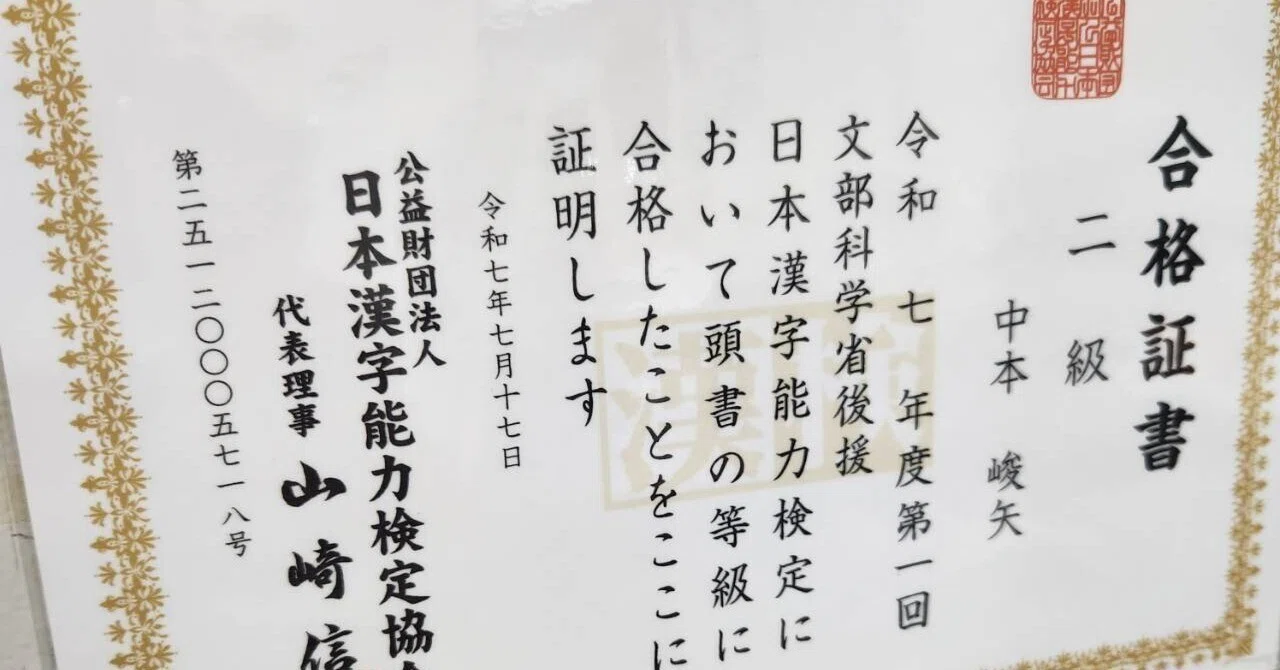 合格証書
二級
中本 峻矢
令和 七 年度第一回
文部科学省後援
日本漢字能力検定に
おいて頭書の等級に
合格したことをここに
証明します
令和七年七月十七日
公益財団法人
日本漢字能力検定協
代表理事 山崎信
第二五一二〇〇〇五七一八号
漢検